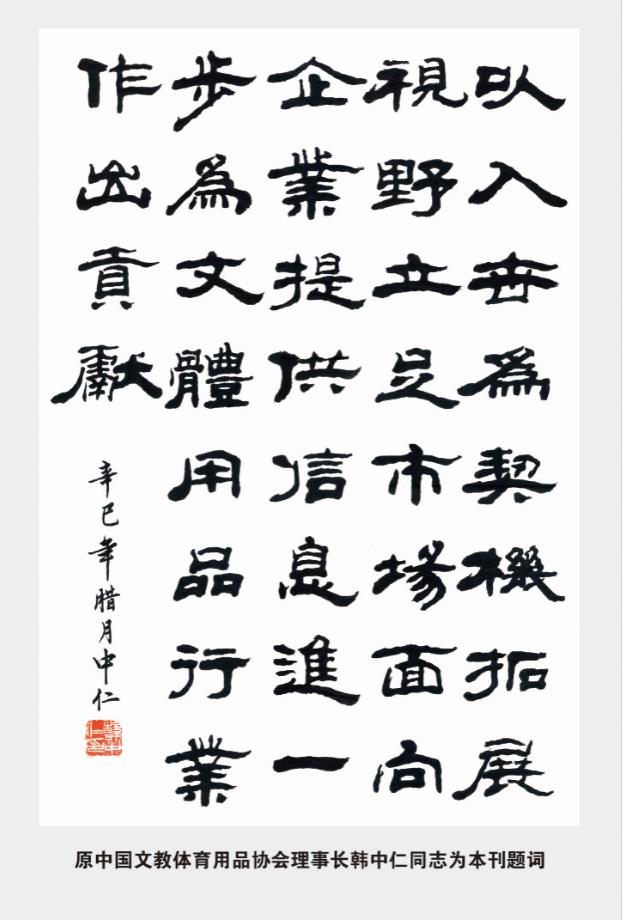 以入世為契機拓展
視野立足市場面向
企業提供信息進一
步為文體用品行業
作出貢獻
辛巳年腊月中仁
韓中仁印
原中国文教体育用品协会理事长韩中仁同志为本刊题词